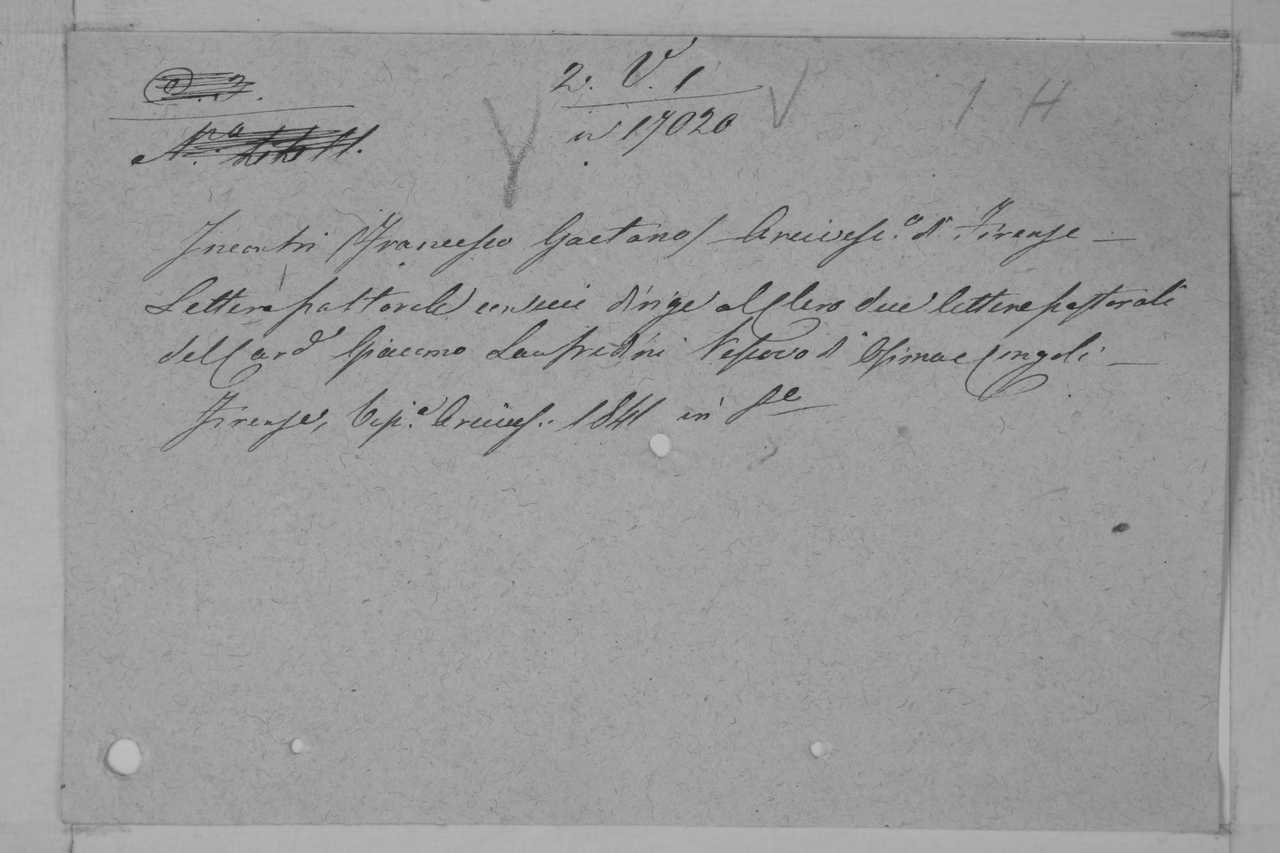 2. V. 1
n 17020
V
1 H
Incontri (Francesco Gaetano) Arcivesc.º di Firenze —
Lettera pastorale con cui dirige al Clero due lettere pastorali
del Card. Giacomo Lanfredini Vescovo d' Osimo e Cingoli —
Firenze, Tip.ª Arcives. 1841 in